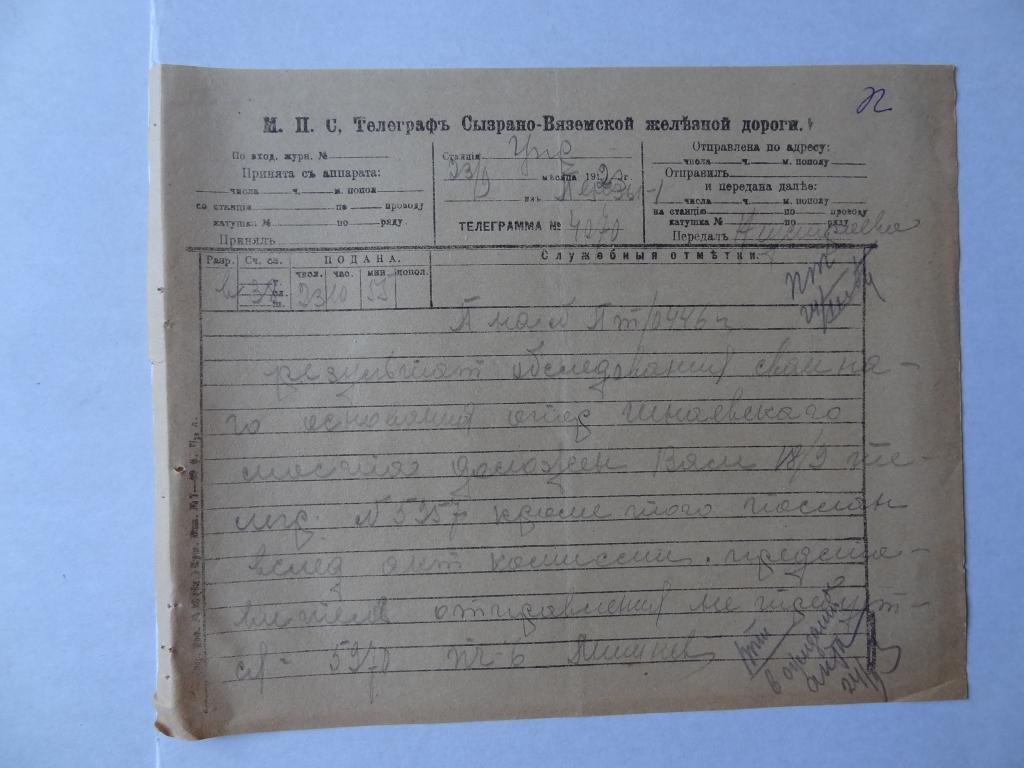 М. П. С. Телеграфъ Сызрано-Вяземской желѣзной дороги.
По вход. журн. №
Принята съ аппарата:
числа ч. м. попол
со станціи по проводу
катушка № по ряду
Принялъ
Станція Упр
23/9 мѣсяца 1923 г.
изъ Пензы-1
ТЕЛЕГРАММА № 4070
Отправлена по адресу:
числа ч. м. пополу
Отправилъ
и передана далѣе:
числа ч. м. пополу
на станцію по проводу
катушка № по ряду
Передалъ
Разр. Сч. сл. ПОДАНА. Служебныя отмѣтки.
числ. час. мин. попол.
23 10 55
ПТ
24/
П на № Пт/0446
результат обследования свайна-
го основания опор
моста доложен Вам 18/9 те-
легр. № 5957 кроме того послан
вслед акт комиссии. представ-
вителей отправления не требует-
ся - 5970 ПЧ-6
в ожидании
акта
24/9